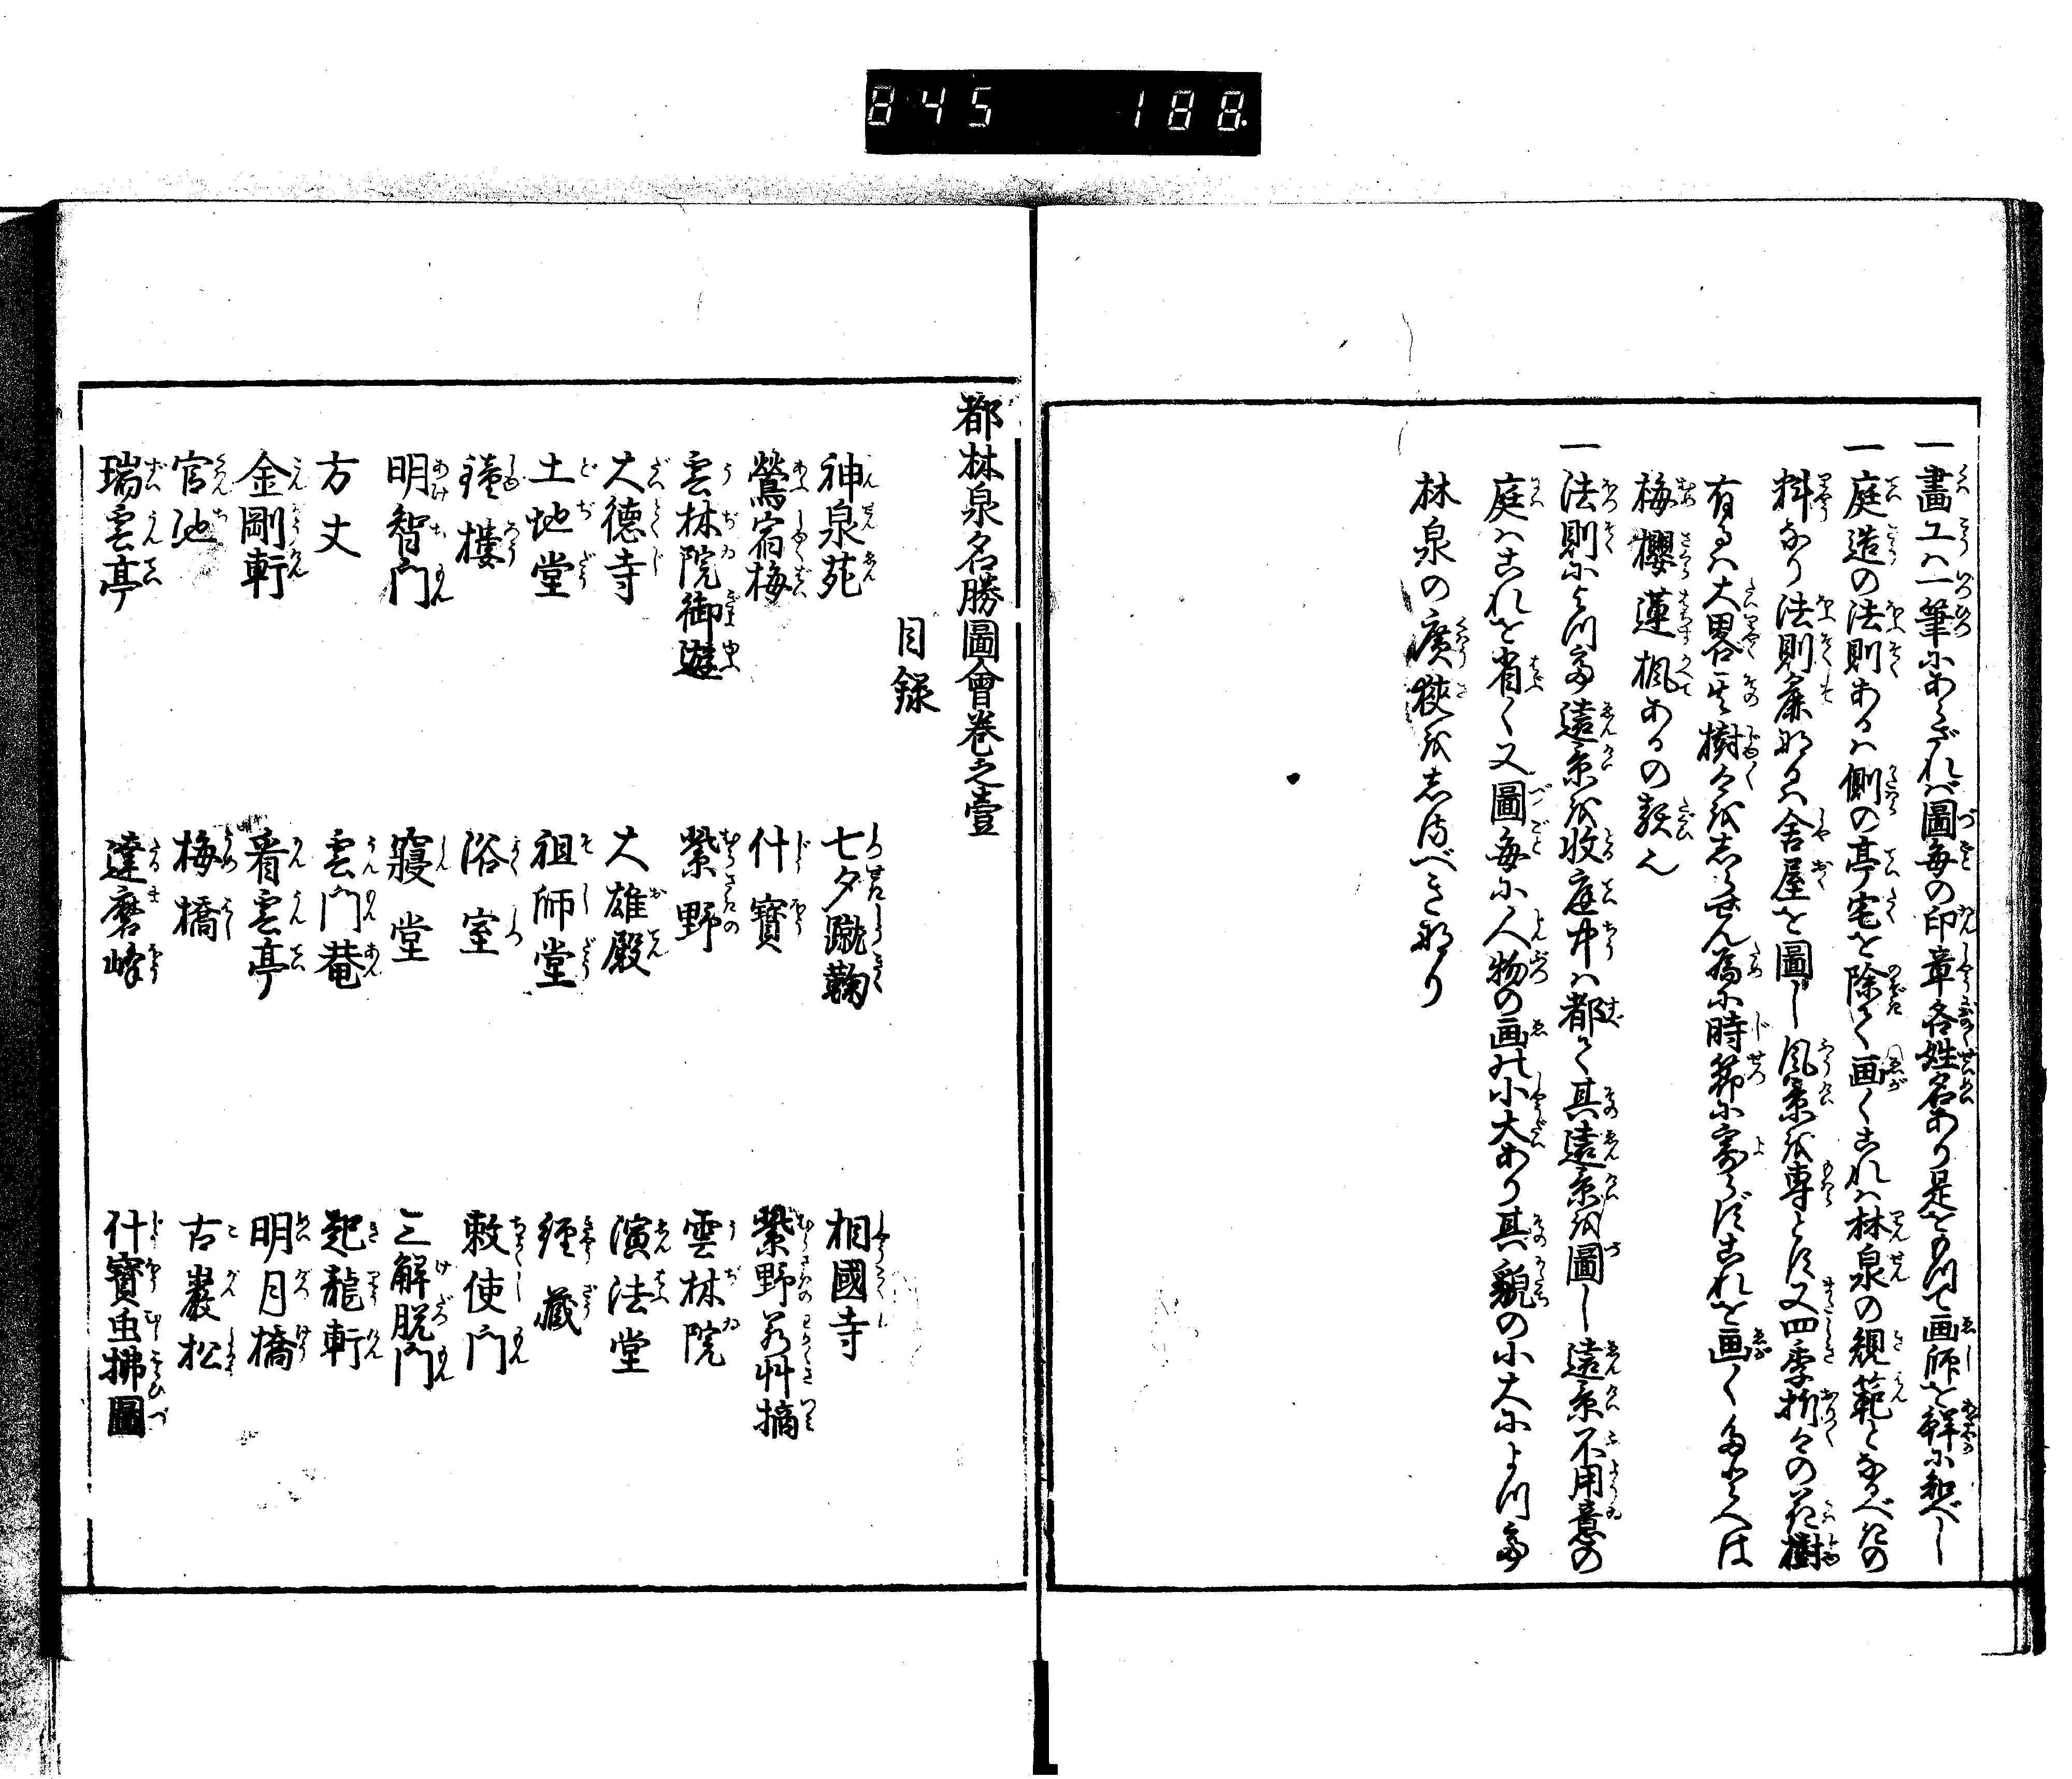 845 188
一畫工ハ一筆にあらざれバ圖毎の印章各姓名あり是をもつて画師を鮮に知べし
一庭造の法則あるハ側の亭宅を除て画くこれハ林泉の規範となるべきの
料なり法則麁なるハ舎屋を圖し風景を專とす又四季折々の花樹
有るハ大畧其樹々をしらせん為に時節に寄らずこれを画くたとへは
梅櫻蓮楓あるの類也
一法則によつて遠景を收庭中ハ都て其遠景を圖し遠景不用意の
庭ハこれを省く又圖毎に人物の画に小大あり其貌の小大によつて
林泉の廣狹をしるべきなり
都林泉名勝圖會巻之壹
目録
神泉苑 七夕蹴鞠 相國寺
鶯宿梅 什寶 紫野若艸摘
雲林院御遊 紫野 雲林院
大德寺 大雄殿 演法堂
土地堂 祖師堂 經藏
鐘樓 浴室 敕使門
明智門 寢堂 三解脱門
方丈 雲門菴 起龍軒
金剛軒 看雲亭 明月橋
官池 梅橋 古巖松
瑞雲亭 達磨峰 什寶虫拂圖